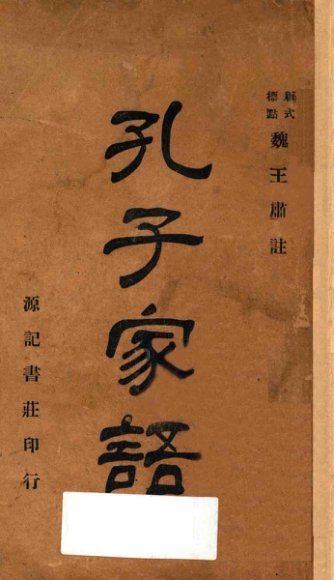 新式標點
魏王肅註
孔子家語
源記書莊印行